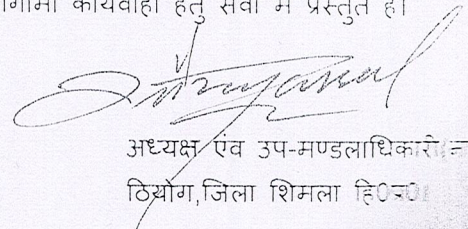 गामी कार्यवाही हेतु सेवा में प्रस्तुत है।
अध्यक्ष एंव उप-मण्डलाधिकारी
ठियोग,जिला शिमला हि0प्र0